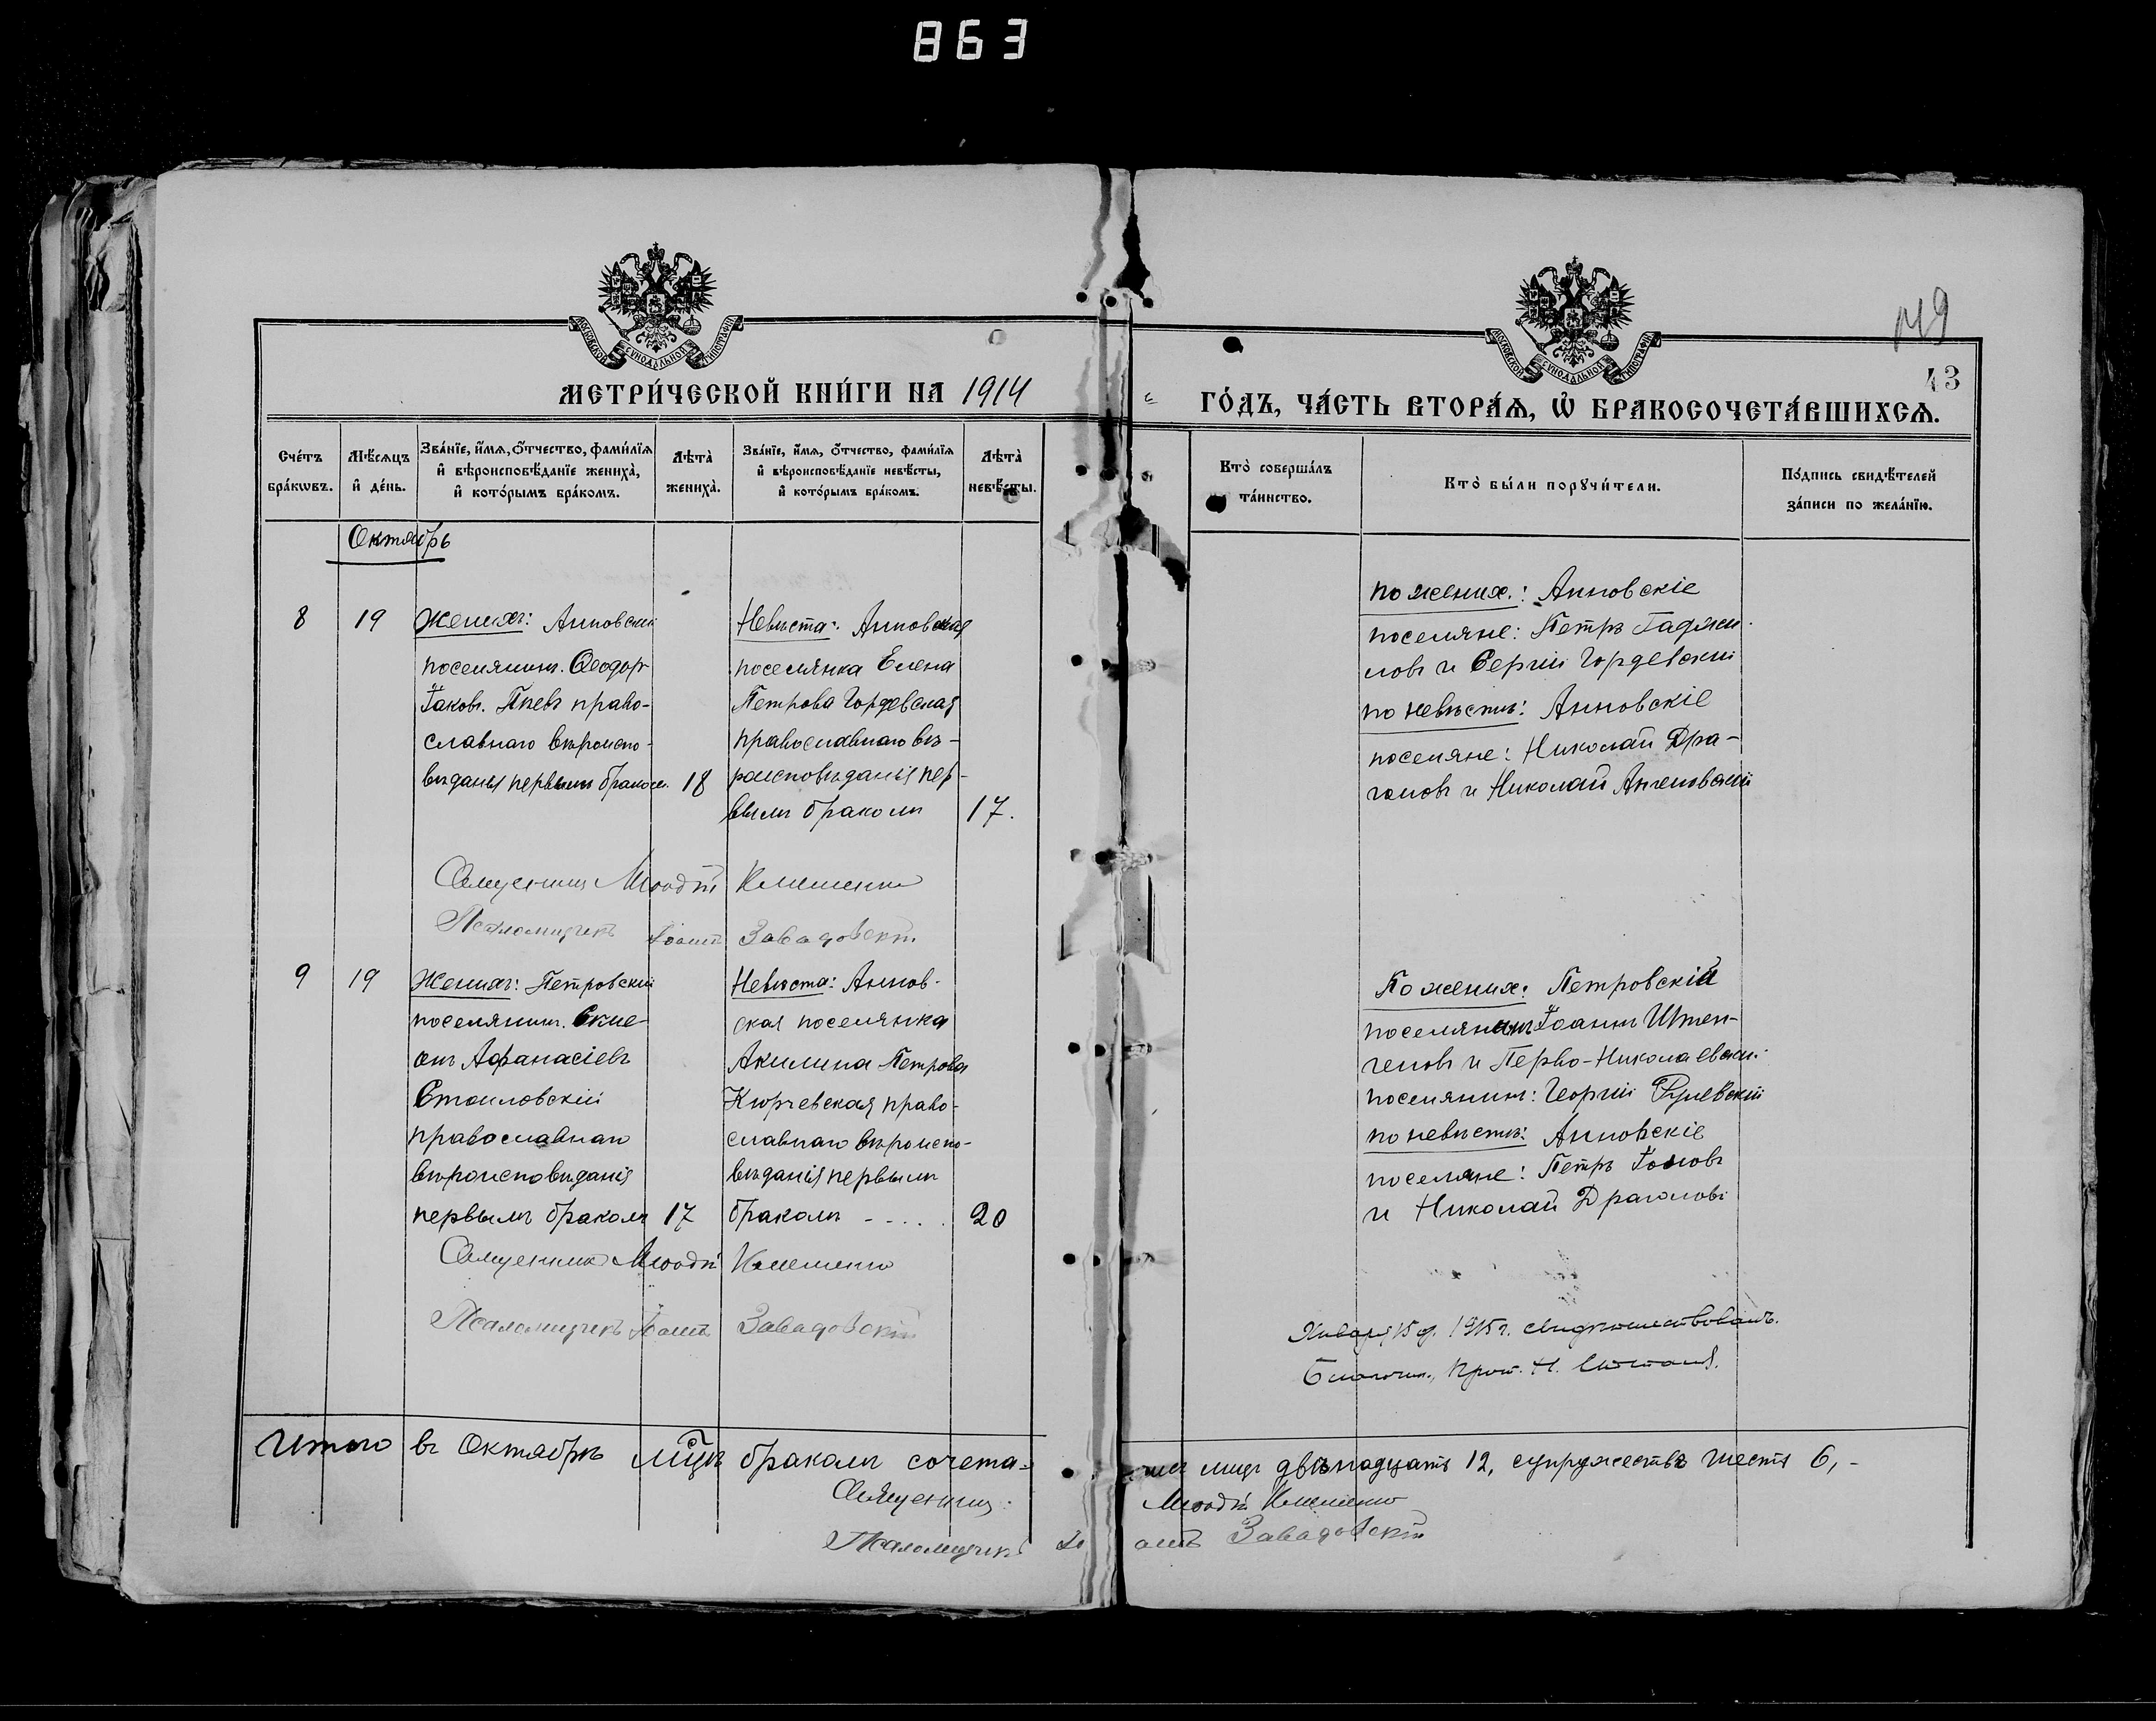 863
МЕТРИ́ЧЕСКОЙ КНИ́ГИ НА 1914
ГО́ДЪ, ЧА́СТЬ ВТОРА́Я, Ѡ БРАКОСОЧЕТА́ВШИХСЯ.
43
Сче́тъ бра́кѡвъ.
Мѣ́сяцъ и де́нь.
Зва́нїе, и́мя, о́тчество, фами́лїя
и вѣроисповѣ́данїе жениха̀,
и кото́рымъ бра́комъ.
Лѣта̀ жениха̀.
Зва́нїе, и́мя, о́тчество, фами́лїя
и вѣроисповѣ́данїе невѣ́сты,
и кото́рымъ бра́комъ.
Лѣта̀ невѣ́сты.
Кто̀ соверша́лъ
та́инство.
Кто̀ бы́ли порꙋчи́тели.
По́дпись свидѣ́телей
за́писи по жела́нїю.
Октябрь
8
19
Женихъ: Анновскій
поселянин. Ѳеодор
Іаков. Пневъ право-
славнаго вѣроиспо-
вѣданія первымъ бракомъ. 18
Невѣста: Анновская
поселянка Елена
Петрова Гордевская
православнаго вѣ-
роисповѣданія пер-
вымъ бракомъ 17.
по жених.: Анновскіе
поселяне: Петръ Гаджи-
ловъ и Сергій Гордевскій
по невѣстѣ: Анновскіе
поселяне: Николай Дра-
гановъ и Николай Ангеловскій
Священник Меѳодій Клименко
Псаломщикъ Іоаннъ Завадовскій
9
19
Женихъ: Петровскій
поселянин. Симе-
онъ Афанасіевъ
Стоиловскій
православнаго
вѣроисповѣданія
первымъ бракомъ 17
Невѣста: Аннов-
ская поселянка
Акилина Петрова
Кюрчевская право-
славнаго вѣроиспо-
вѣданія первымъ
бракомъ - . . . . 20
По жених: Петровскій
поселянинъ Іоаннъ Штен-
геловъ и Перво-Николаевскій
поселянин: Георгій Рулевскій
по невѣстѣ: Анновскіе
поселяне: Петръ Іововъ
и Николай Драгановъ
Священник Меѳодій Клименко
Псаломщикъ Іоаннъ Завадовскій
Января 15 д. 1915 г. свидѣтельствовалъ.
Благочин., Прот. Н.
Итого въ Октябрѣ мцѣ бракомъ сочета-
лись лицъ двѣнадцать 12, супружествъ шесть 6,-
Священник: Меѳодій Клименко
Псаломщикъ Іоаннъ Завадовскій